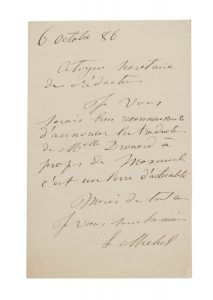 6 Octobre 86
Citoyen Secretaire
de Rédaction
Je vous
serais bien reconnaissante
d'annoncer la traduction
de Melle Drouard à
propos de
c'est un livre d'actualité
Merci de tout cœur
Je vous serre la main
L Michel